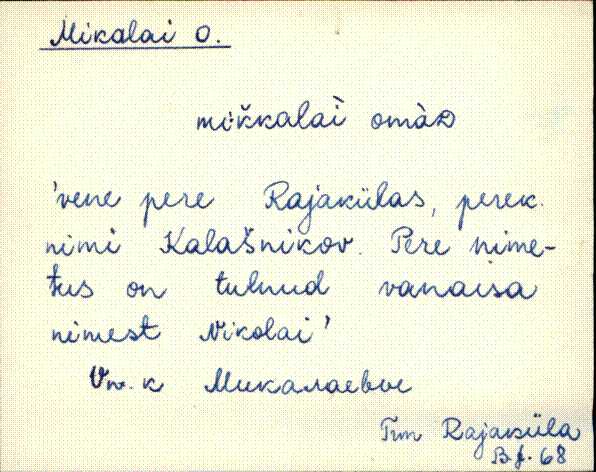 Mikalai o.
mi·kkalaì omàD
'vene pere Rajakülas, perek.
nimi Kalašnikov. Pere nime-
tus on tulnud vanaisa
nimest Nikolai'
Vn. k Микалаевые
Trm Rajaküla
68